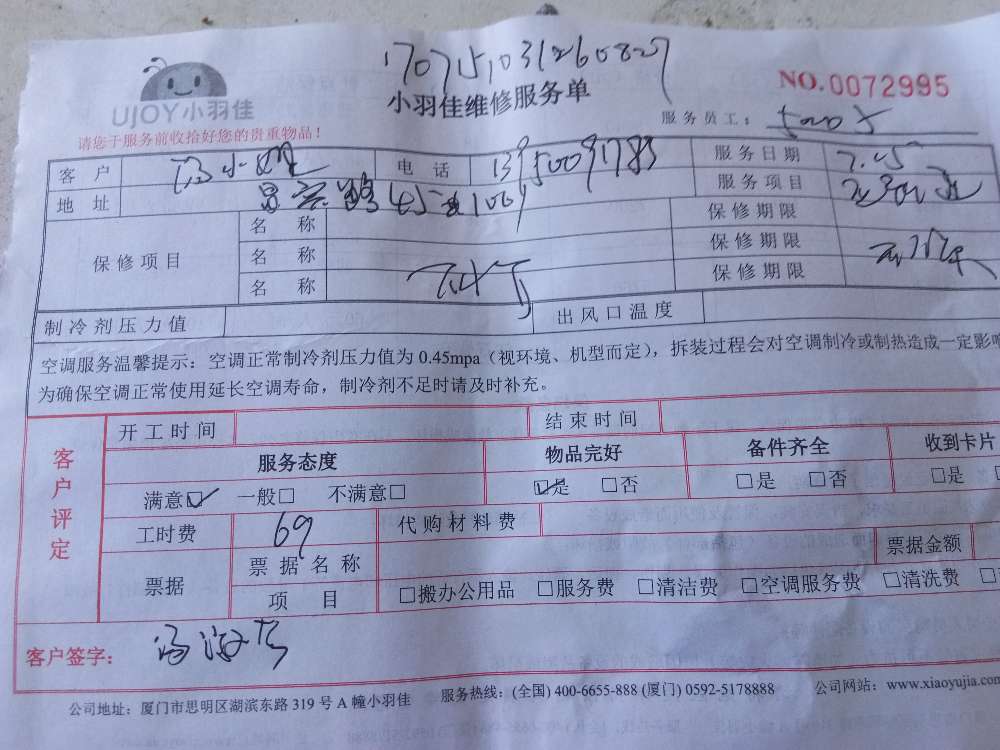 17075103126082
小羽佳维修服务单
NO.0072995
UJOY小羽佳
请您于服务前收拾好您的贵重物品！
服务员工：
客 户 电 话 服务日期 7.15
地 址 服务项目
保修项目 名 称 保修期限
名 称 保修期限
名 称 保修期限
制冷剂压力值 出风口温度
空调服务温馨提示：空调正常制冷剂压力值为 0.45mpa（视环境、机型而定），拆装过程会对空调制冷或制热造成一定影响
为确保空调正常使用延长空调寿命，制冷剂不足时请及时补充。
客户评定
开工时间 结束时间
服务态度 物品完好 备件齐全 收到卡片
满意☑ 一般□ 不满意□ ☑是 □否 □是 □否 □是
工时费 69 代购材料费
票据 票据名称 票据金额
项 目 □搬办公用品 □服务费 □清洁费 □空调服务费 □清洗费
客户签字：
公司地址：厦门市思明区湖滨东路 319 号 A 幢小羽佳 服务热线：(全国) 400-6655-888 (厦门) 0592-5178888 公司网站：www.xiaoyujia.com